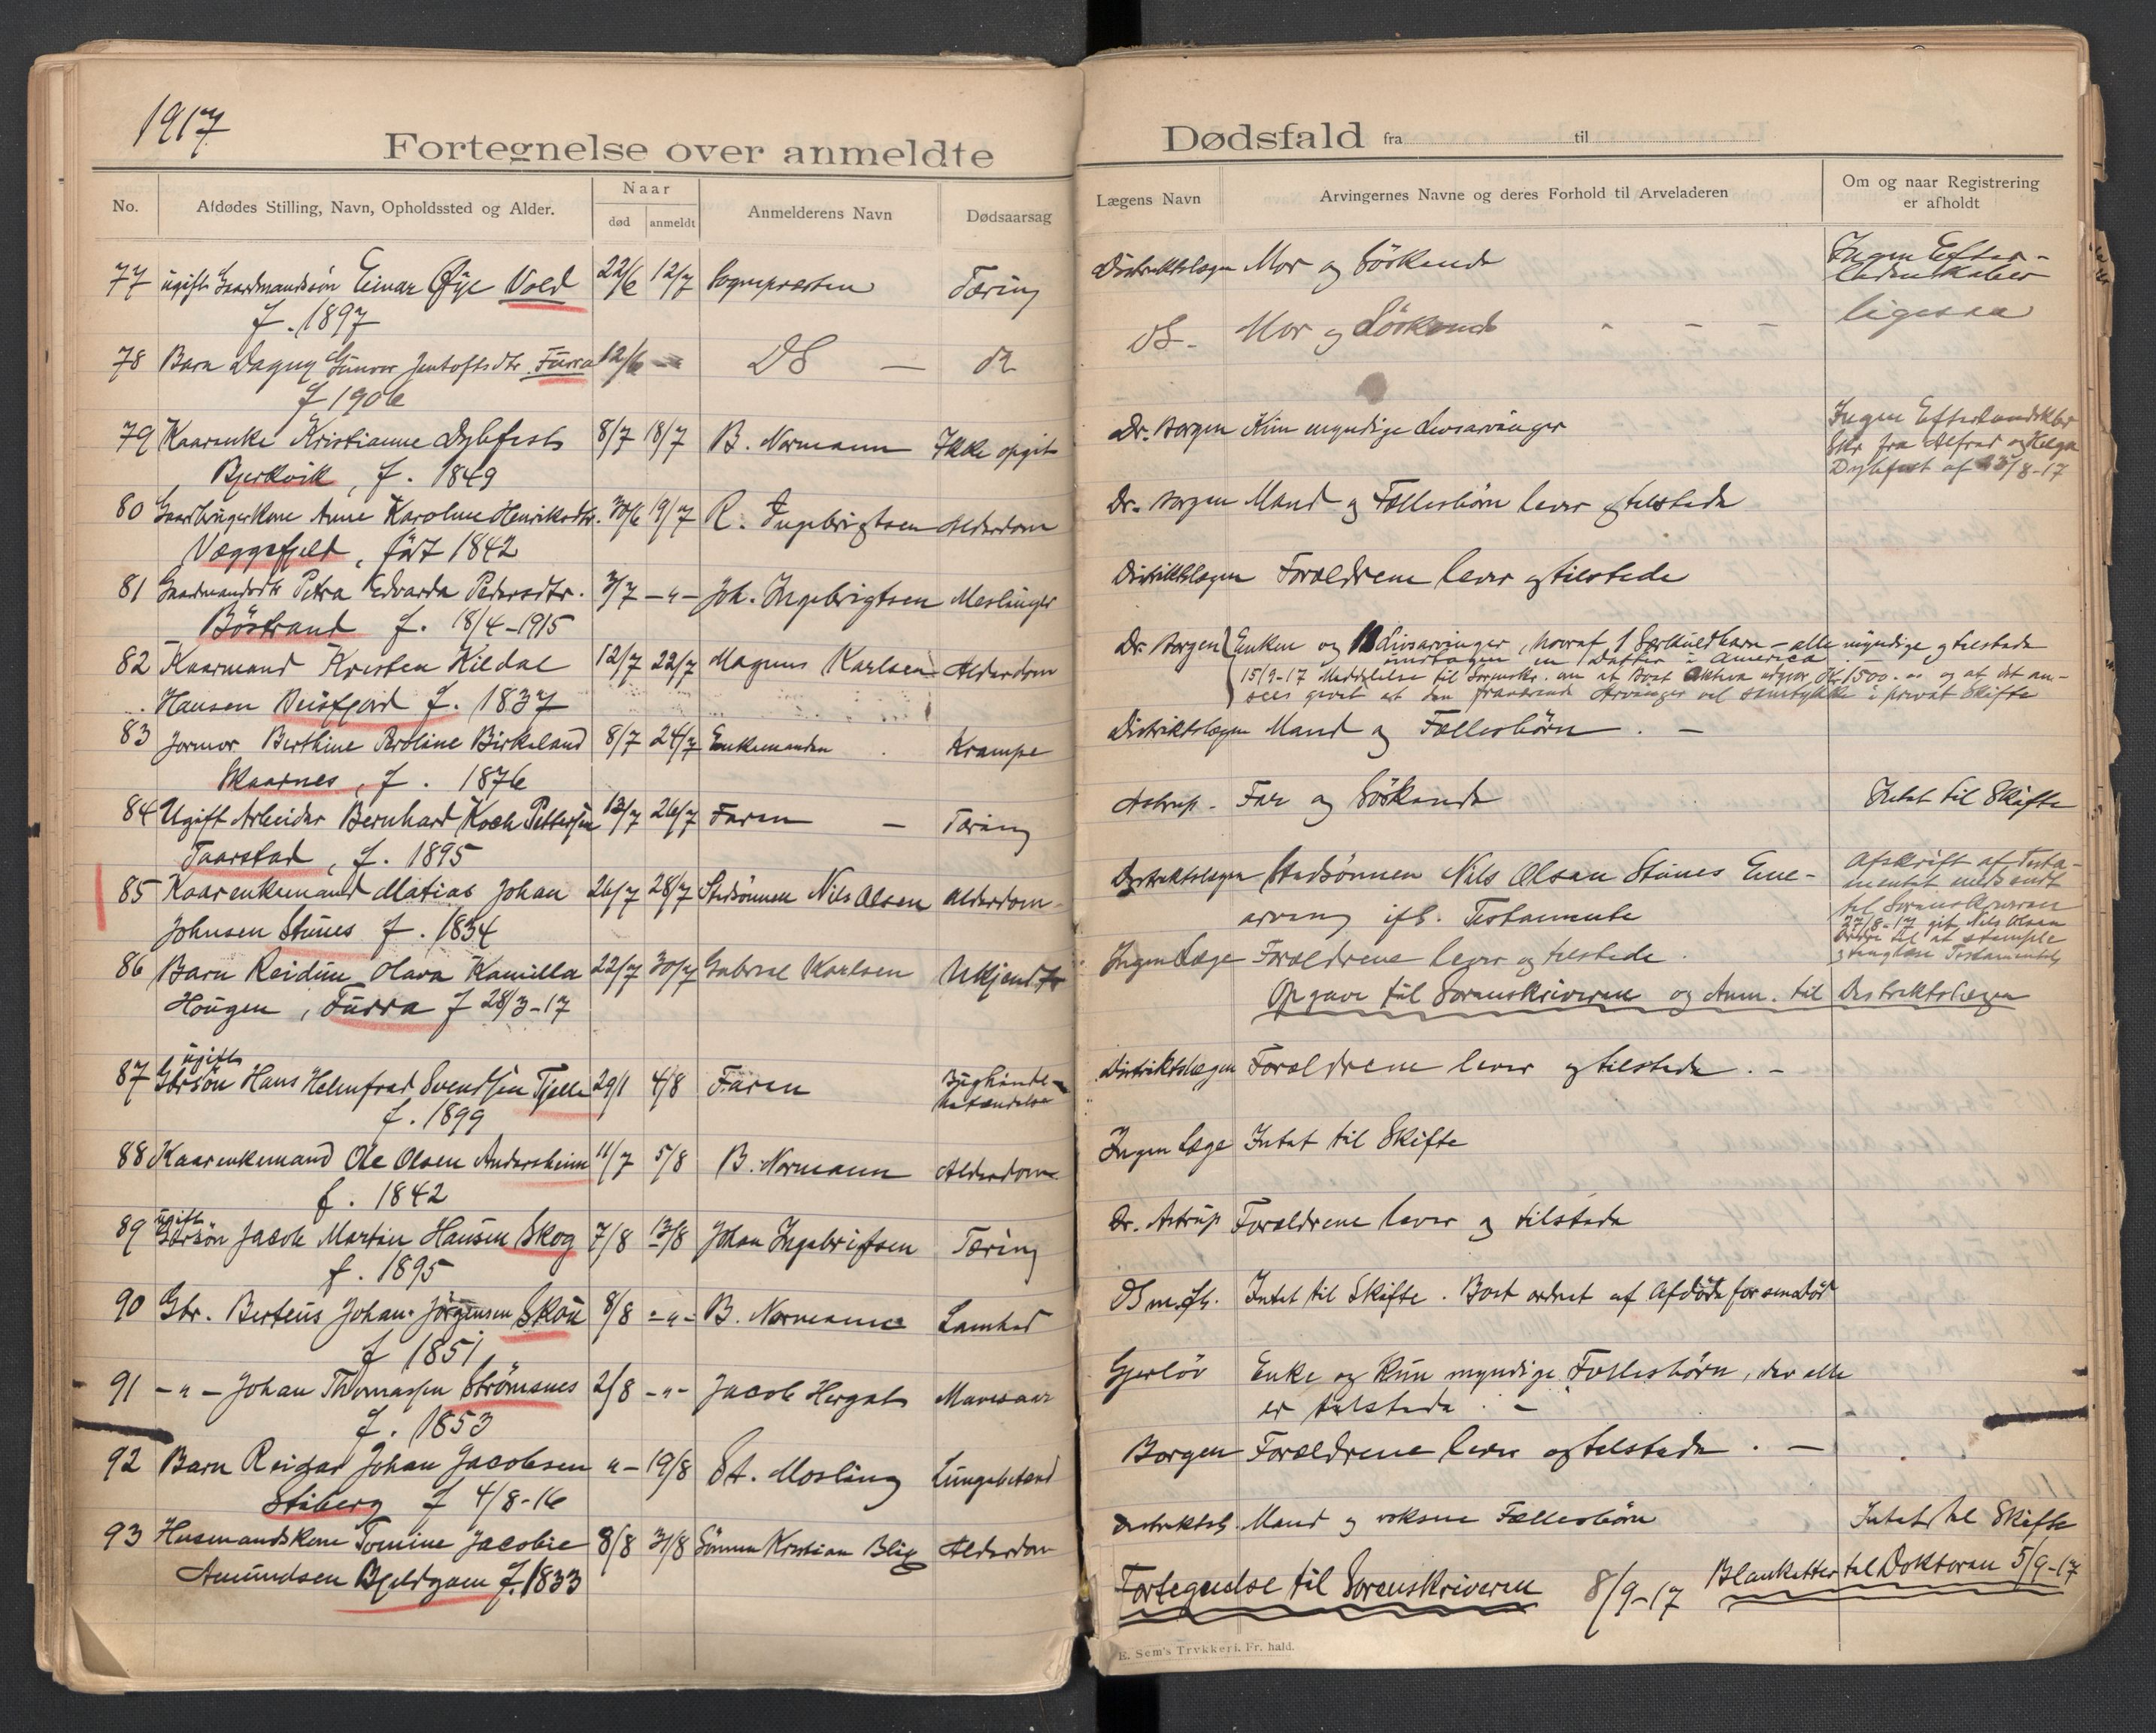 1917
Fortegnelse over anmeldte
Dødsfald fra til
No.
Afdødes Stilling, Navn, Opholdssted og Alder.
Naar
død
anmeldt
Anmelderens Navn
Dødsaarsag
Lægens Navn
Arvingernes Navne og deres Forhold til Arveladeren
Om og naar Registrering
er afholdt
77 ugift Gaardmandssøn Einar Øye Vold 22/6 12/7 Sognepræsten Tæring
f. 1897
Distriktslægen Mor og Söskende Ingen Efter-
ladenskaber
78 Barn Dagny Gunvor Jentoftsdtr. Furra 12/6 DS — ds
f 1906
DS - Mor og Söskende ligesaa
79 Kaarenke Kristianne Dybfest 8/7 18/7 B. Normann Ikke opgit
Bjerkvik, f. 1849
Dr. Borgen Kun myndige Livsarvinger Ingen Efterladenskber
Skr fra Alfred og Helga
Dybfest af 23/8-17
80 Gaardbrugerkone Anne Karoline Henriksdtr. 30/6 19/7 R. Ingebrigtsen Alderdom
Væggefjeld, født 1842
Dr. Borgen Mand og Fællesbörn lever og tilstede
81 Gaardmandsdtr Petra Edvarda Pedersdtr. 3/7 -"- Joh. Ingebrigtsen Meslinger
Böstrand f. 18/4-1915
Distriktslægen Forældrene lever og tilstede
82 Kaarmand Kristen Kildal 12/7 22/7 Magnus Karlsen Alderdom
Hansen Beisfjord f. 1837
Dr. Borgen Enken og Livsarvinger, hvoraf 1 Særkuldbarn - alle myndige og tilstede
undtagen en Datter i America
15/9-17 Meddelelse til Sorenskr. om at Boets Aktiva udgjør Kr 1500.- og at det an-
sees givet at den fraværende Arvinger vil samtykke i privat Skifte
83 Jormor Berthine Peroline Birkeland 8/7 24/7 Enkemanden Krampe
Skaarnes, f. 1876
Distriktslægen Mand og Fællesbörn. -
84 Ugift Arbeider Bernhard Koch Pettersen 13/7 26/7 Faren — Tæring
Taarstad, f. 1895
Astrup - Far og Söskende Intet til Skifte
85 Kaarenkemand Matias Johan 26/7 28/7 Stedsönnen Nils Olsen Alderdom
Johnsen Stunes f. 1834
Distriktslægen Stedsönnen Nils Olsen Stunes Ene-
arving ifl. Testamente
Afskrift af Testa-
mentet nedsendt
til Sorenskriveren
27/8-17 git Nils Olsen
Ordre til at stemple
og tinglæse Testamentet
86 Barn Reidun Olava Kamilla 22/7 30/7 Gabriel Karlsen Ukjendt
Hougen, Furra f 28/3-17
Ingen Læge Forældrene lever og tilstede.
Opgave til Sorenskriveren og Anm. til Distriktslægen
87 ugift
Gbrsön Hans Helmfred Svendsen Tjelle 29/1 4/8 Faren Bughinde-
betændelse
f. 1899
Distriktslægen Forældrene lever og tilstede. -
88 Kaarenkemand Ole Olsen Andersheim 11/7 5/8 B. Normann Alderdom
f. 1842
Ingen Læge Intet til Skifte
89 ugift
Gbrsön Jacob Martin Hansen Skog 7/8 13/8 Johan Ingebrigtsen Tæring
f. 1895
Dr. Astrup Forældrene lever og tilstede
90 Gbr. Berteus Johan Jörgensen Skou 8/8 -"- B. Normann Lamhed
f 1851
Intet til Skifte. Boet ordnet af Afdöde for sin död
91 -"- Johan Thomassen Strömsnes 2/8 -"- Jacob Hergot Mavesaar
f. 1853
Gjerlöv Enke og kun myndige Fællesbörn, der alle
er tilstede. -
92 Barn Reidar Johan Jacobsen "- 19/8 St. Mosling Lungebetænd
Stiberg f 4/8-16
Borgen Forældrene lever og tilstede. -
93 Husmandskone Tomine Jacobie 8/8 31/8 Sönnen Kristian Blix Alderdom
Amundsen Bjeldgam f. 1833
Distriktsl. Mand og voksne Fællesbörn Intet til Skifte
Fortegnelse til Sorenskriveren 8/9-17 Blanketter til Doktoren 5/9-17
E. Sem's Trykkeri. Fr. hald.